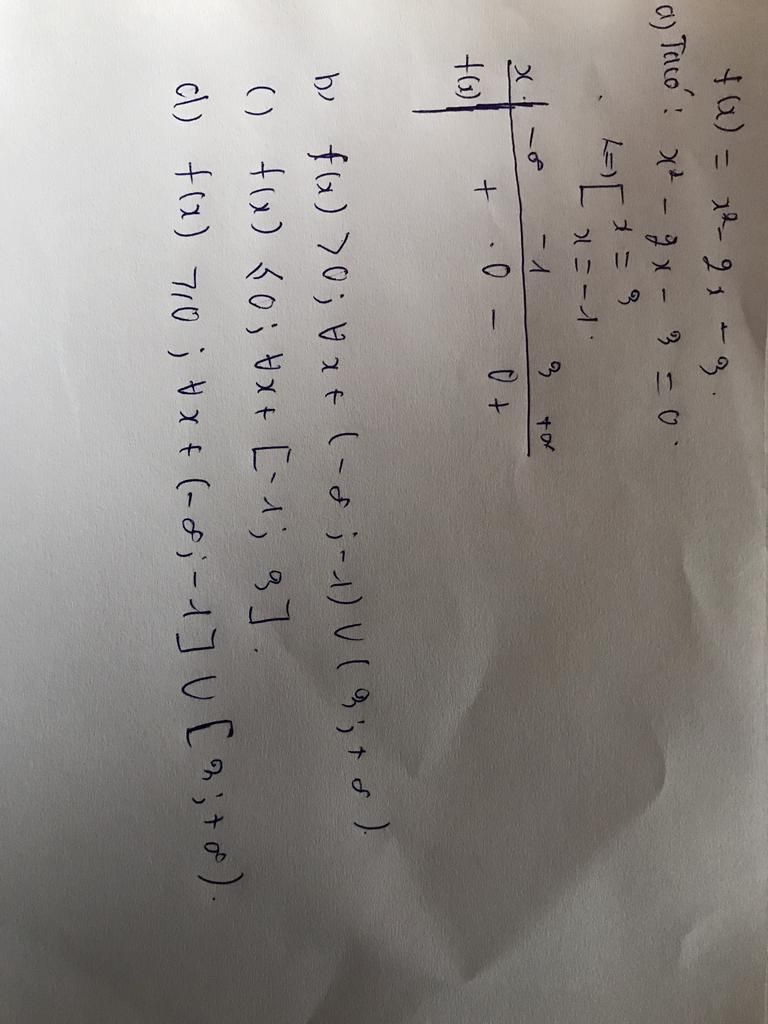 f(x) = x² - 2x - 3.
a) Ta có: x² - 2x - 3 = 0.
<=> [ x = 3
x = -1.
x -∞ -1 3 +∞
f(x) + 0 - 0 +
b) f(x) > 0; ∀x ∈ (-∞; -1) ∪ (3; +∞).
c) f(x) ≤ 0; ∀x ∈ [-1; 3].
d) f(x) ≥ 0; ∀x ∈ (-∞; -1] ∪ [3; +∞).